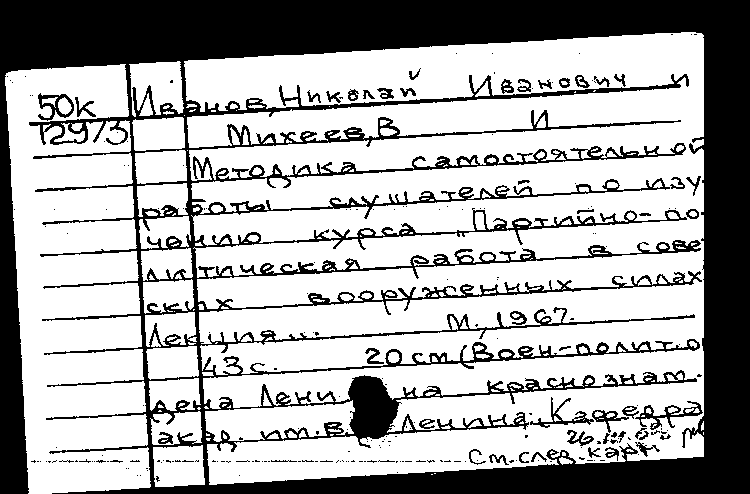 50к Иванов, Николай Иванович и
12973 Михеев, В И
Методика самостоятельной
работы слушателей по изу-
чению курса „Партийно-по-
литическая работа в сове
ских вооруженных силах
Лекция... М., 1967.
43 с. 20 см (Воен.-полит. о
дена Ленина краснознам.
акад. им. В. Ленина. Кафедра
См. след. карт